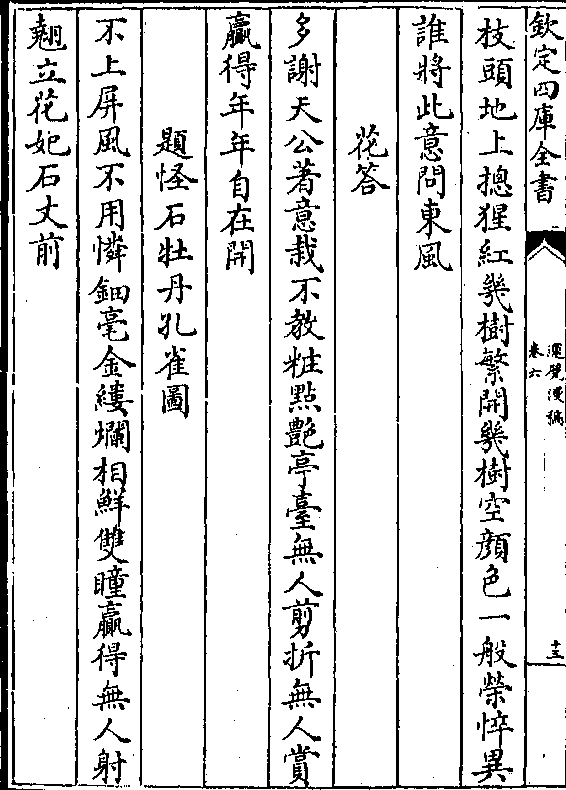 欽定四庫全書
還覺漫編
卷六
十三
枝頭地上摠猩紅㡬樹繁開㡬樹空顔色一般榮悴異
誰將此意問東風
花答
多謝天公著意栽不教粧點艶亭臺無人剪折無人賞
贏得年年自在開
題怪石牡丹孔雀圖
不上屏風不用憐鈿毫金縷爛相鮮雙瞳贏得無人射
翹立花妃石丈前